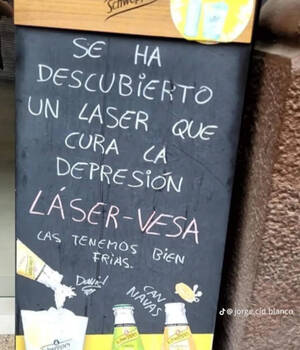 Schweppes
SE HA
DESCUBIERTO
UN LASER QUE
CURA LA
DEPRESIÓN
LÁSER-VESA
LAS TENEMOS BIEN
FRIAS.
David
CAN
NAVAS
@jorge.cid.blanco